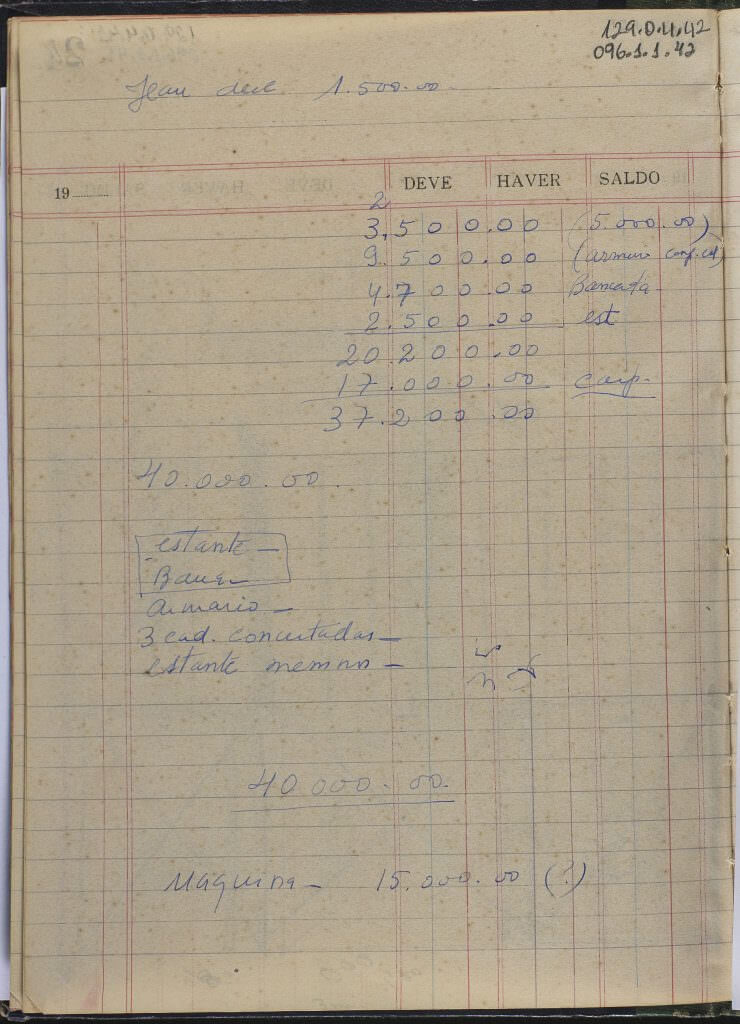 129.0.4.42
096.1.1.42
Jean deve 1.500.00
19 DEVE HAVER SALDO
2
3,500.00 (5.000.00)
9.500.00 (armario
4.700.00 Bancada
2.500.00 est
20.200.00
17.000.00 carp.
37.200.00
40.000.00.
estante —
armario —
3 cad. concertadas —
estante —
40.000.00
Maquina — 15.000.00 (?)